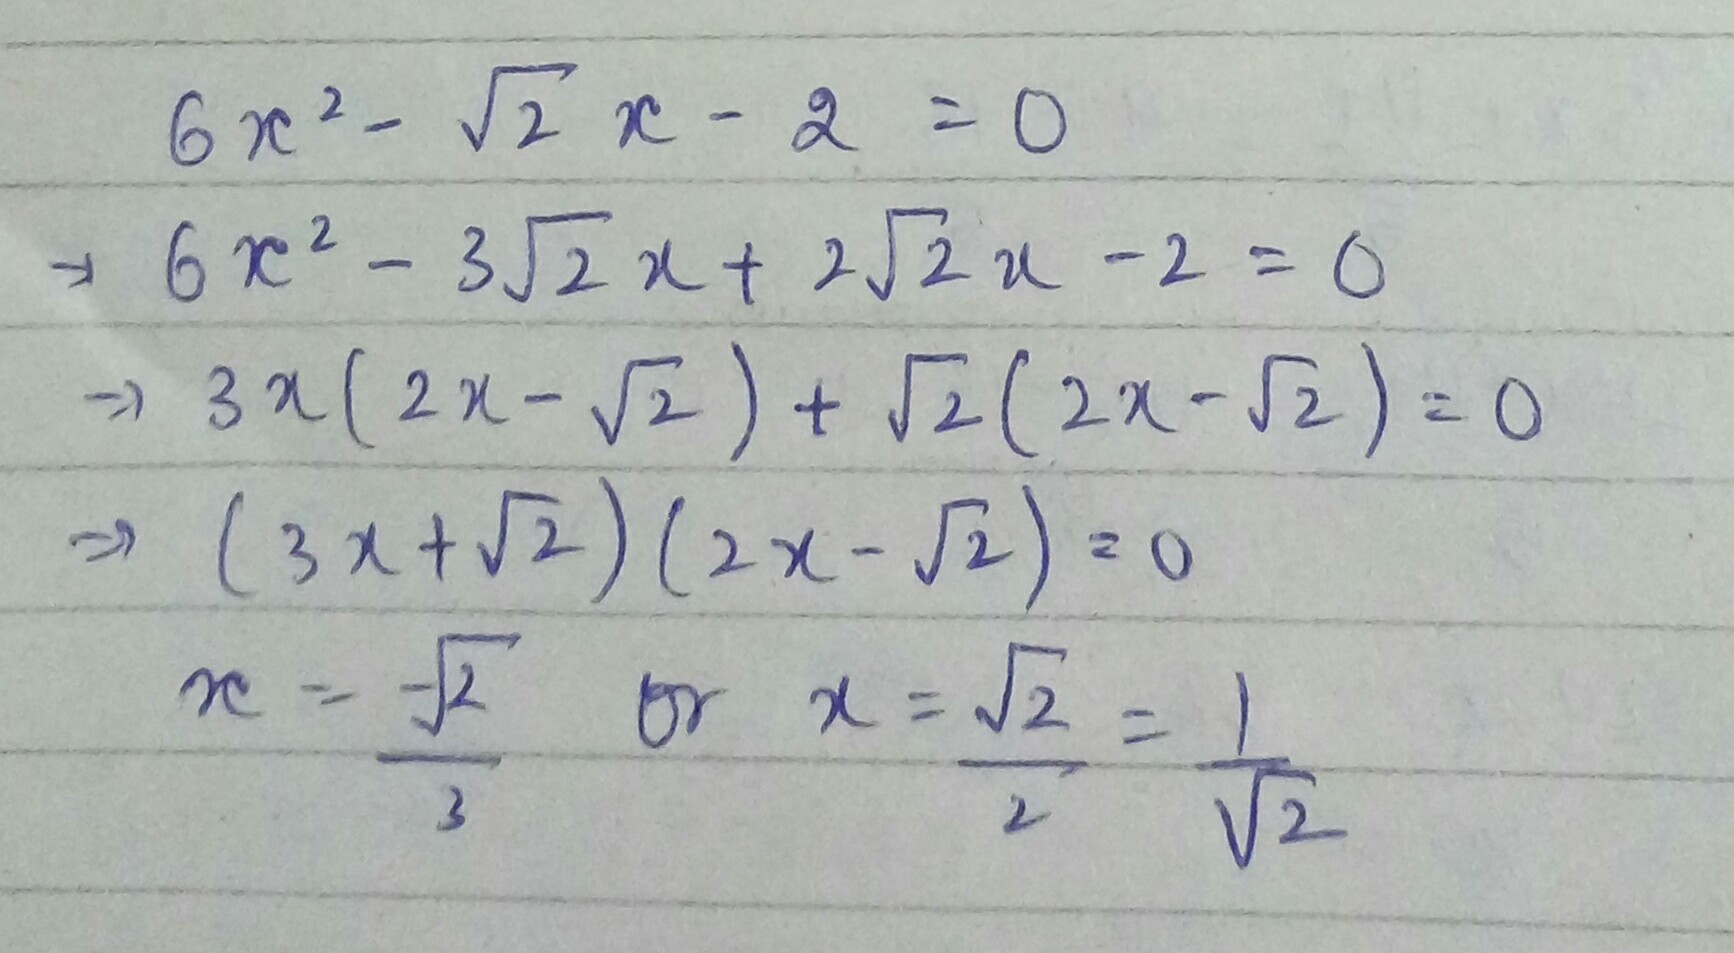 6x² - √2 x - 2 = 0
→ 6x² - 3√2x + 2√2x - 2 = 0
→ 3x(2x - √2) + √2(2x - √2) = 0
⇒ (3x + √2)(2x - √2) = 0
x = -√2/3 or x = √2/2 = 1/√2